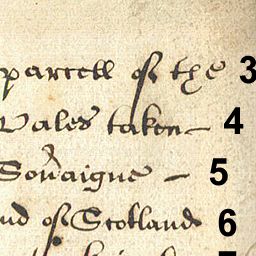 parcell of the 3
Vales taken 4
Sou'aigne 5
nd of Scotland 6